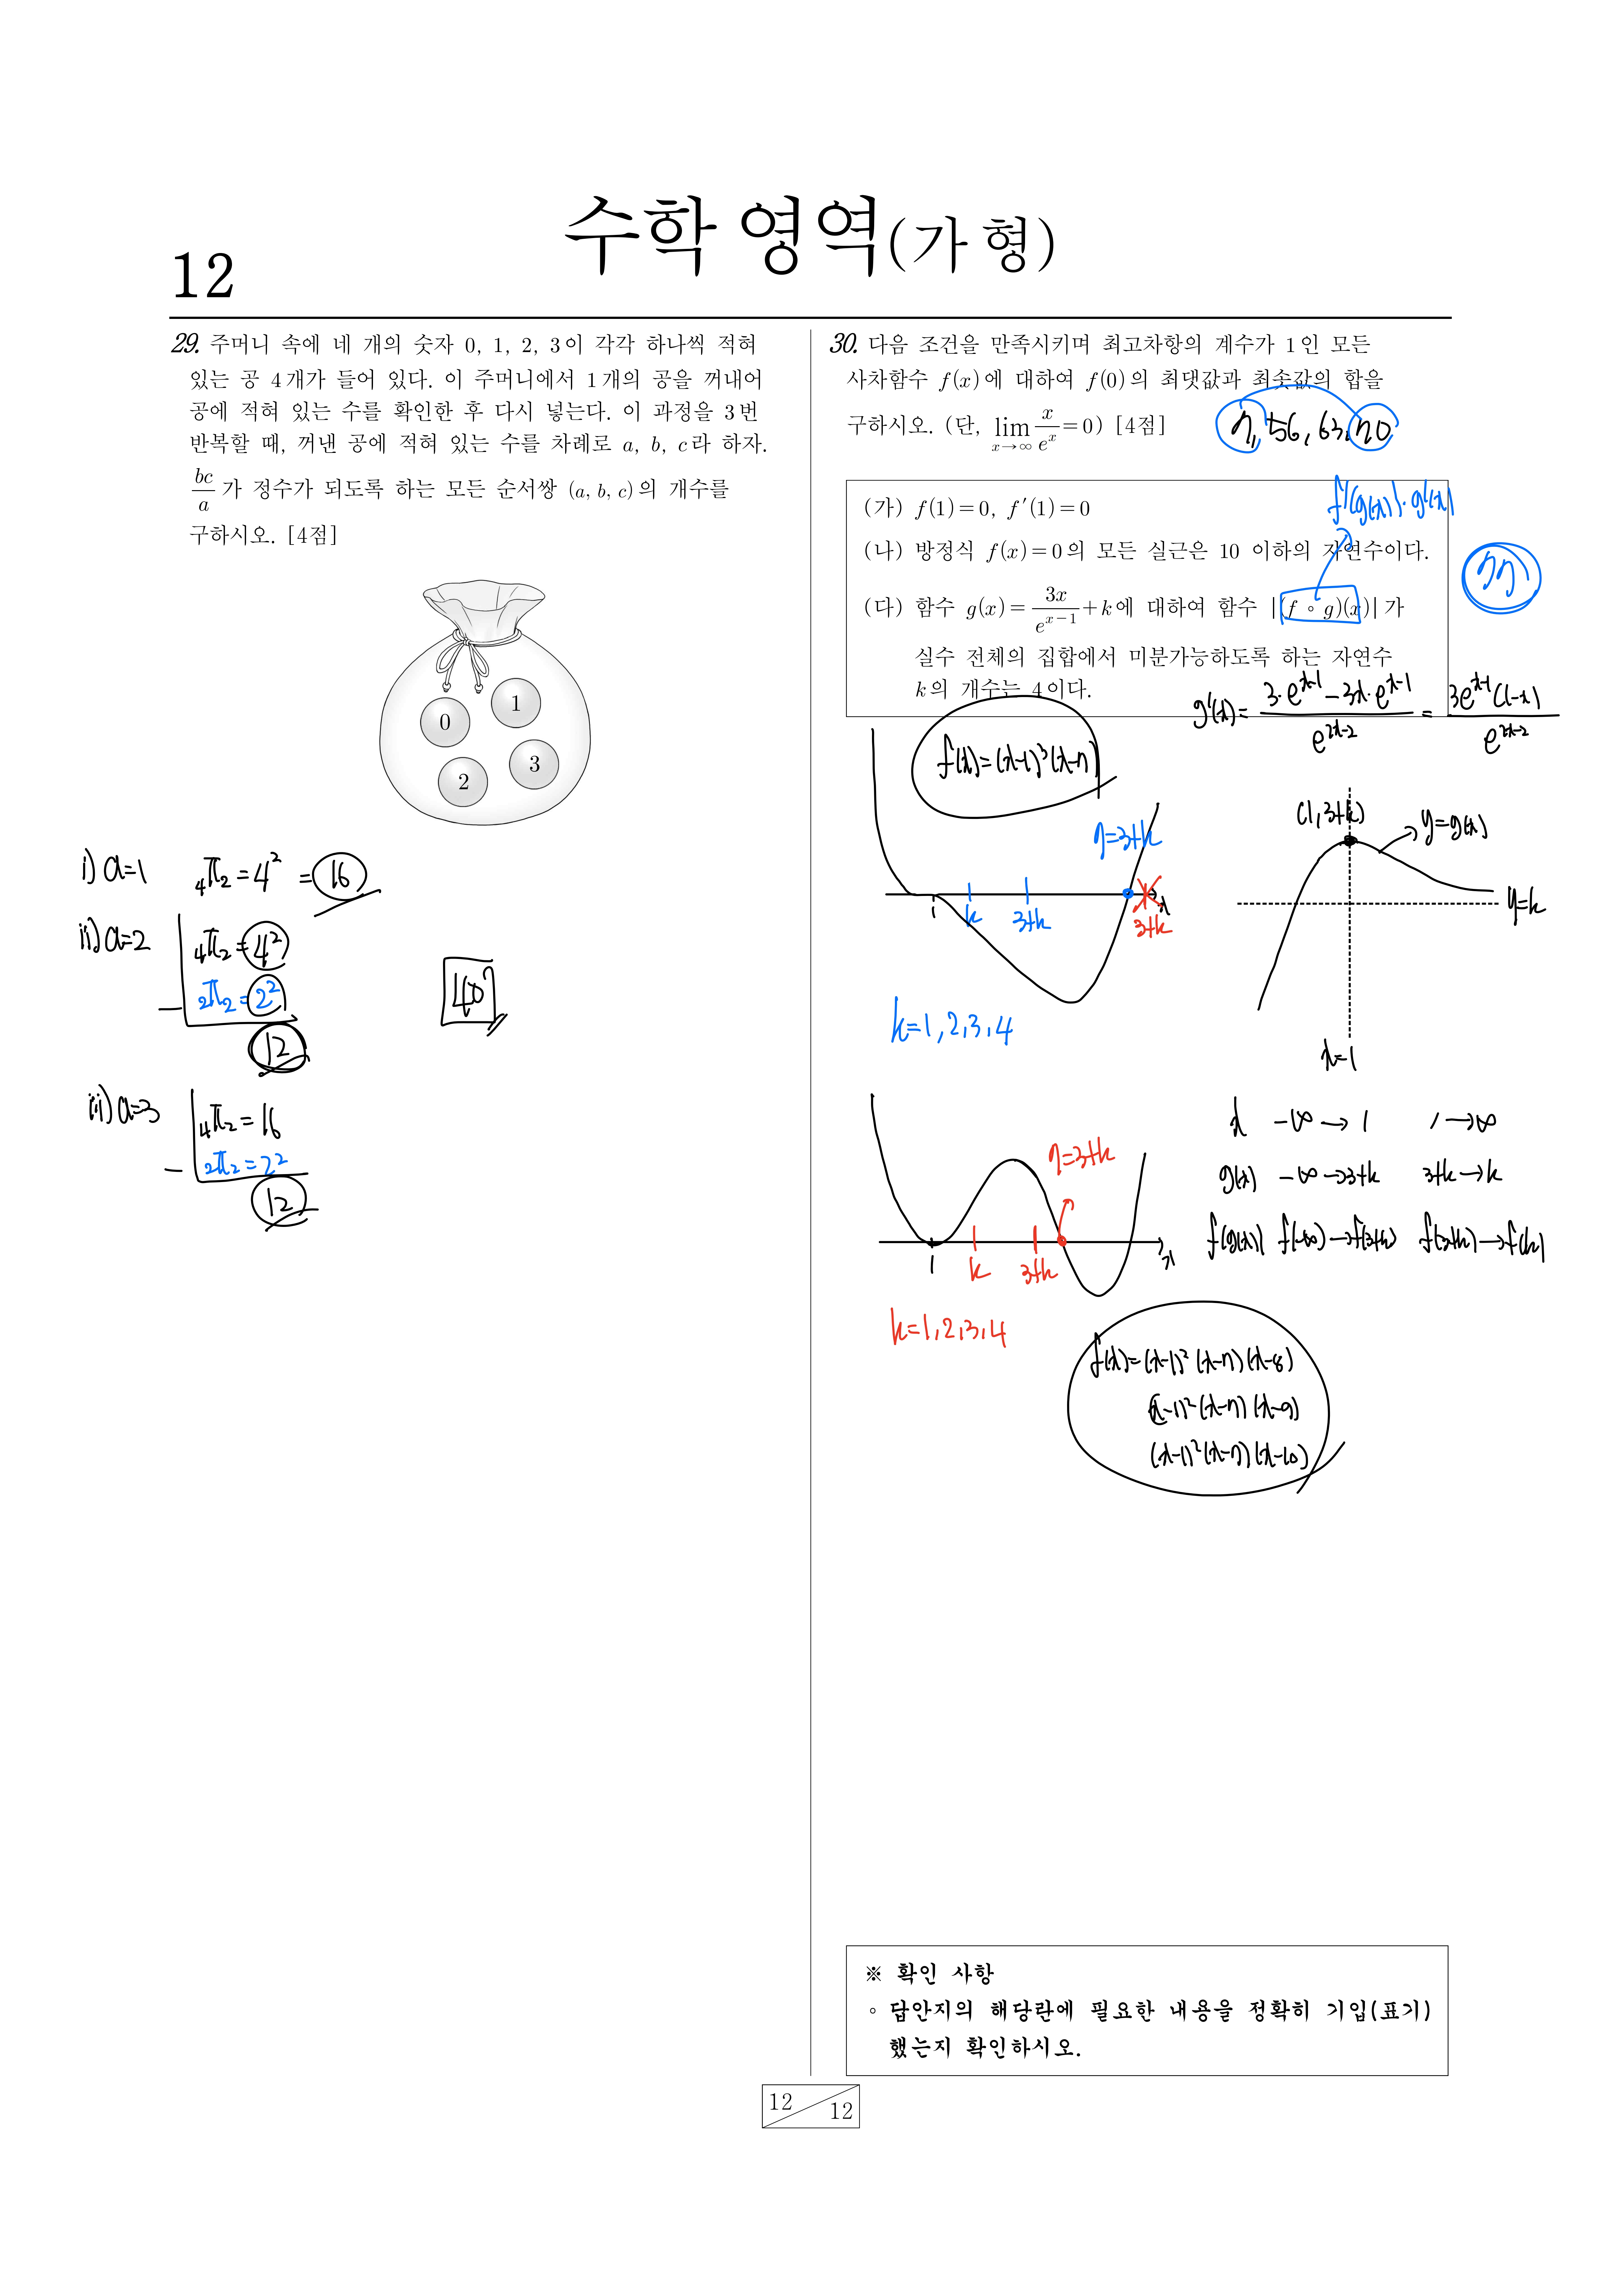 12
수학 영역(가 형)
29. 주머니 속에 네 개의 숫자 0, 1, 2, 3이 각각 하나씩 적혀
있는 공 4개가 들어 있다. 이 주머니에서 1개의 공을 꺼내어
공에 적혀 있는 수를 확인한 후 다시 넣는다. 이 과정을 3번
반복할 때, 꺼낸 공에 적혀 있는 수를 차례로 a, b, c라 하자.
bc/a 가 정수가 되도록 하는 모든 순서쌍 (a, b, c)의 개수를
구하시오. [4점]
0
1
2
3
i) a=1 ₄Π₂ = 4² = 16
ii) a=2 ₄Π₂ = 4²
- ₂Π₂ = 2²
12
40
iii) a=3 ₄Π₂ = 16
- ₂Π₂ = 2²
12
30. 다음 조건을 만족시키며 최고차항의 계수가 1인 모든
사차함수 f(x)에 대하여 f(0)의 최댓값과 최솟값의 합을
구하시오. (단, lim x→∞ x/eˣ = 0) [4점]
7, 56, 63, 70
(가) f(1)=0, f′(1)=0
f'(g(x))·g'(x)
(나) 방정식 f(x)=0의 모든 실근은 10 이하의 자연수이다.
77
(다) 함수 g(x)= 3x/e^(x-1) +k에 대하여 함수 |(f∘g)(x)|가
실수 전체의 집합에서 미분가능하도록 하는 자연수
k의 개수는 4이다.
g'(x) = (3·e^(x-1) - 3x·e^(x-1))/e^(2x-2) = 3e^(x-1)(1-x)/e^(2x-2)
f(x)=(x-1)³(x-7)
7=3+k
1
k
3+k
3+k
x
k=1, 2, 3, 4
(1, 3+k)
y=g(x)
y=k
x=1
7=3+k
1
k
3+k
x
k=1, 2, 3, 4
x -∞ → 1 1 → ∞
g(x) -∞ → 3+k 3+k → k
f(g(x)) f(-∞) → f(3+k) f(3+k) → f(k)
f(x)=(x-1)²(x-7)(x-8)
(x-1)²(x-7)(x-9)
(x-1)²(x-7)(x-10)
※ 확인 사항
◦ 답안지의 해당란에 필요한 내용을 정확히 기입(표기)
했는지 확인하시오.
12
12